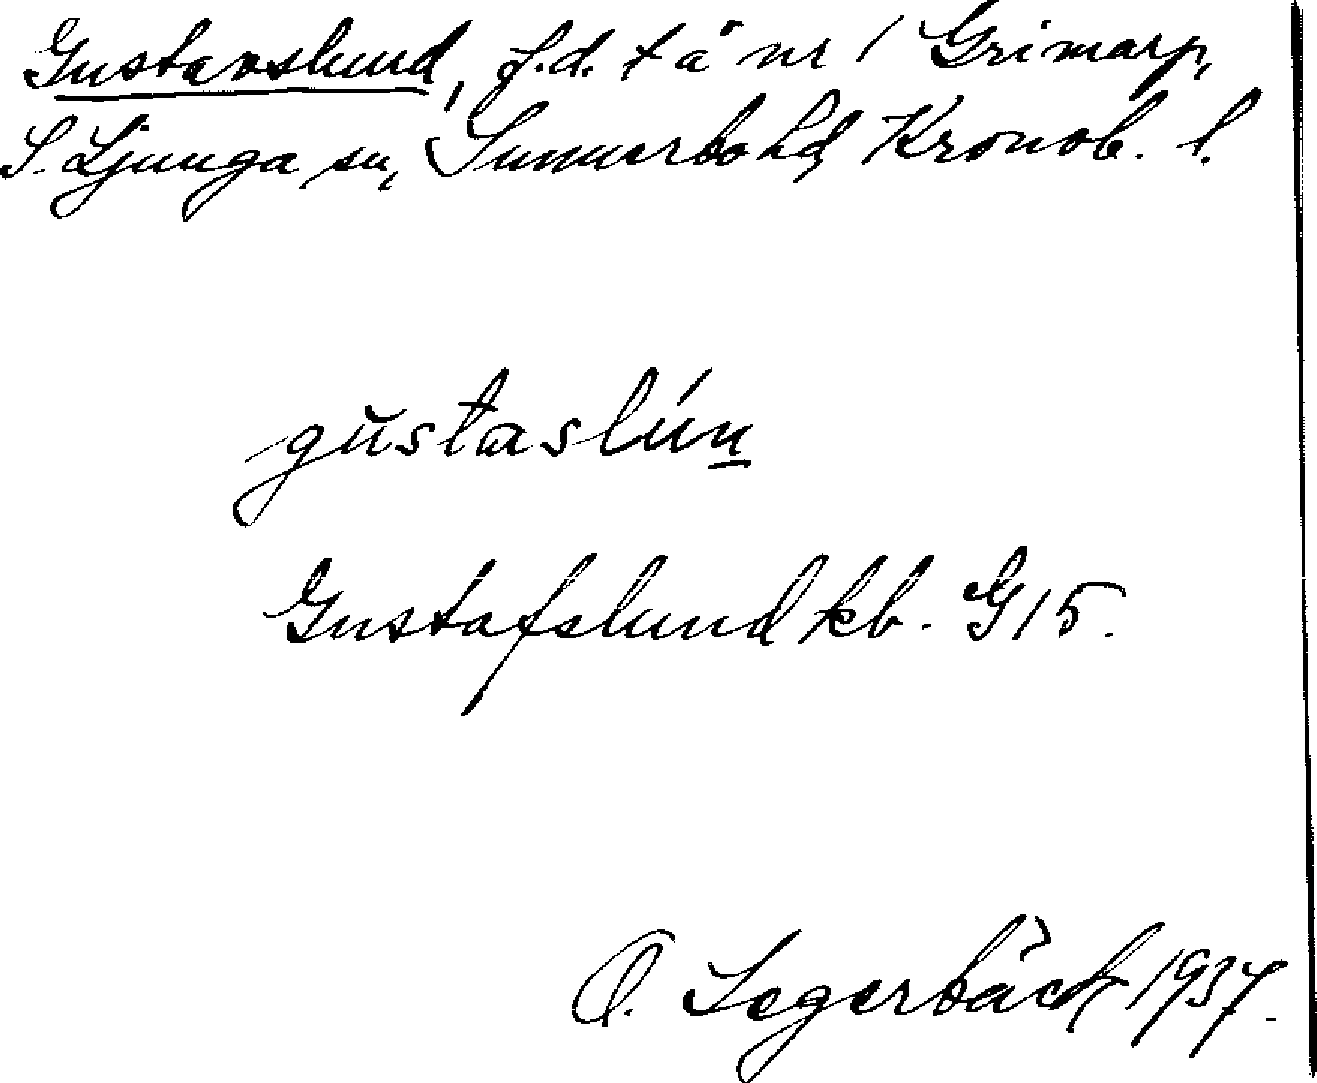 Gustavslund, f.d. t å nr 1 Grimarp,
S. Ljunga sn, Sunnerbo hd, Kronob. l.
gŭstaslún̲
Gustafslund kb. G 15.
O. Segerbäck 1937.